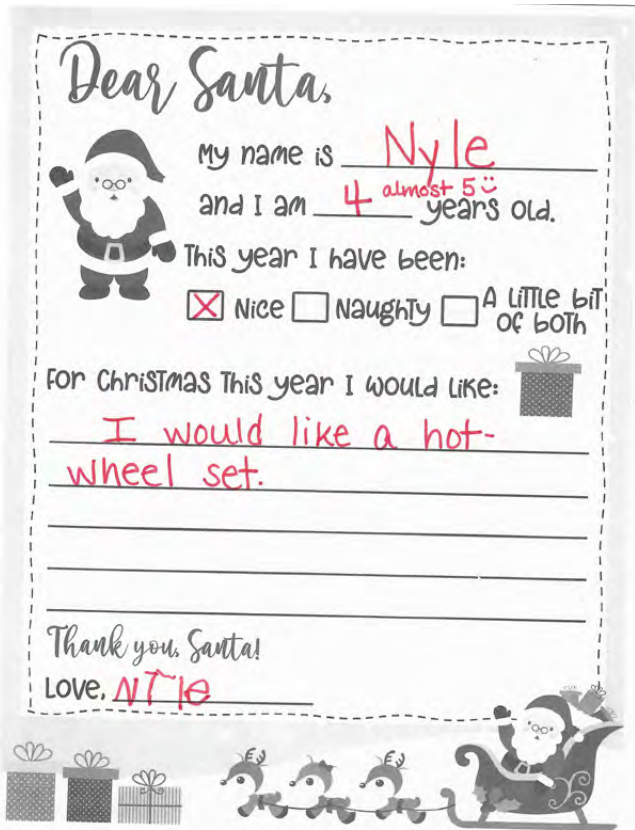 Dear Santa,
My name is Nyle
and I am 4 almost 5 years old.
This year I have been:
Nice Naughty A little bit of both
For Christmas this year I would like:
I would like a hot-
wheel set.
Thank you, Santa!
Love, Nyle